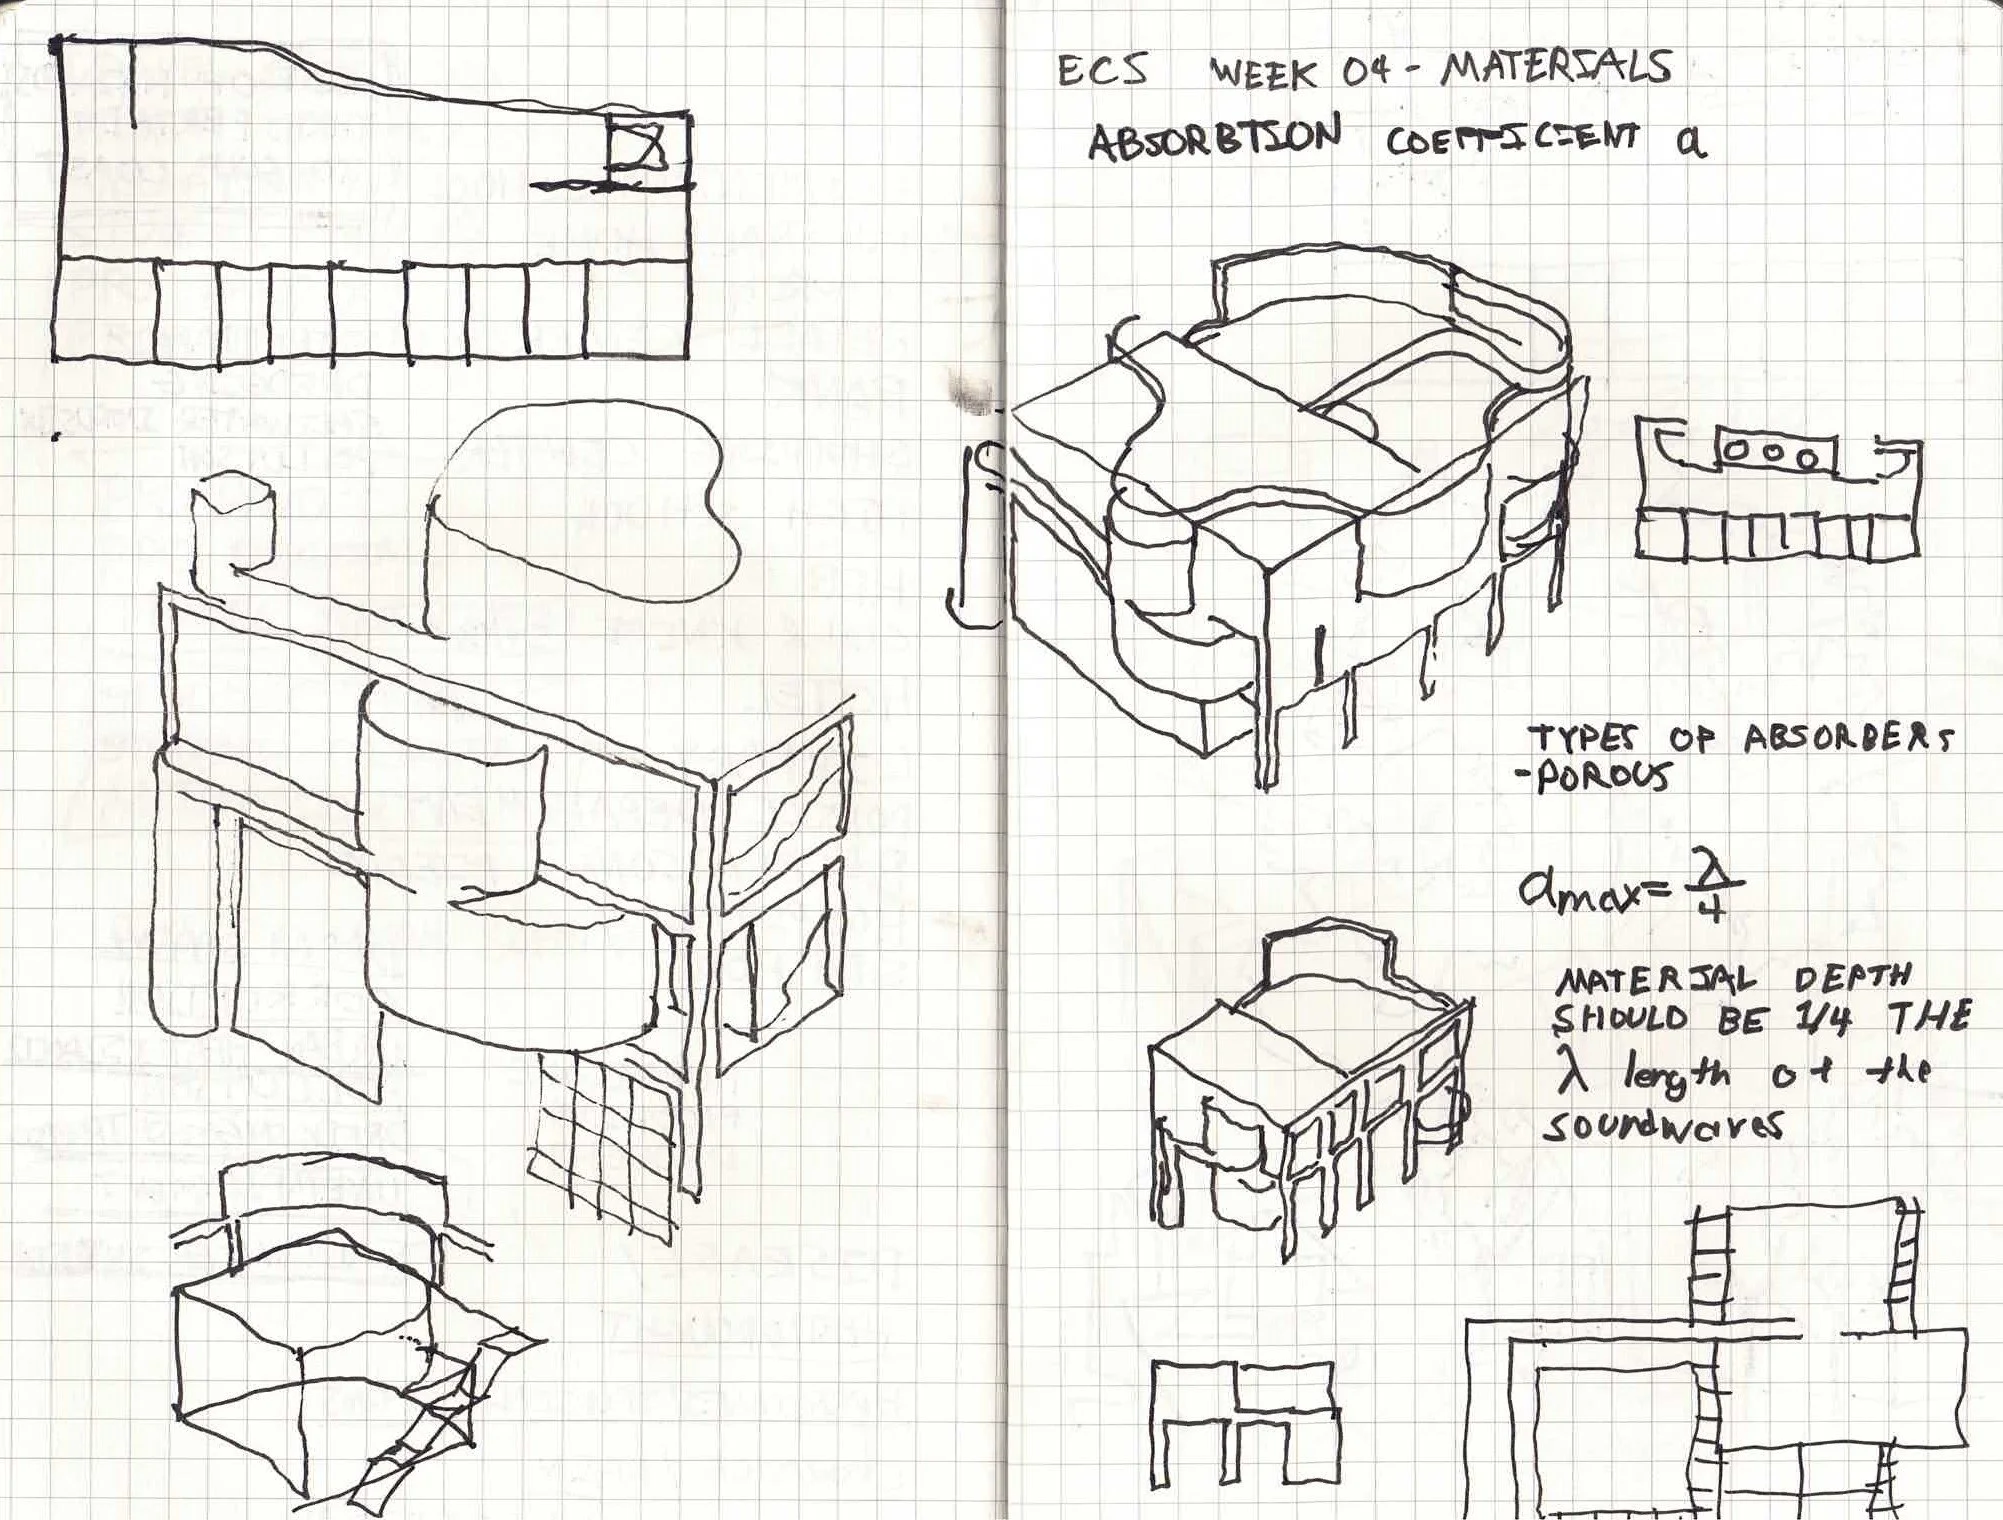 ECS WEEK 04 - MATERIALS
ABSORBTION COEFFICIENT a
TYPES OF ABSORBERS
-POROUS
amax = λ/4
MATERIAL DEPTH
SHOULD BE 1/4 THE
λ length of the
soundwaves